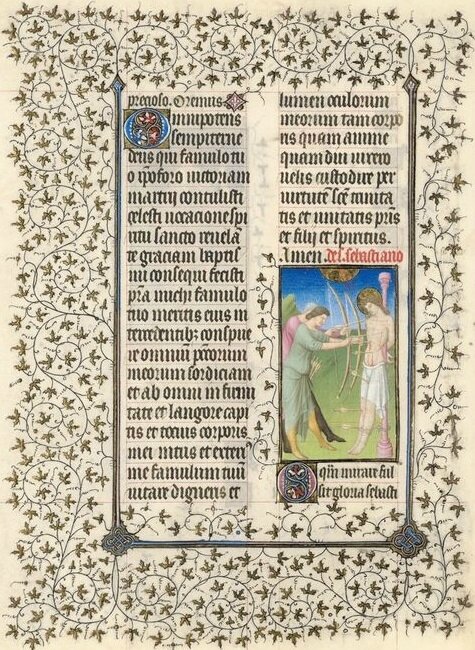 Oremus
Omnipotens
sempiterne
deus qui famulo tu
o xpoforo uictoriam
martirij contulisti
celesti uocacione spi
ritu sancto reuela
te graciam baptis
mi consequi fecisti
pra michi famulo
tuo meritis eius in
tercedentibz conspue
re omniū pccorum
meorum sordiciam
et ab omni infirmi
tate et langore capi
tis et tocius corporis
mei intus et exteri
me famulum tuū
uitare digneris et
lumen oculorum
meorum tam corpo
ris quam anime
quam diu uixero
uelis custodire per
uirtutē scē trinita
tis et unitatis pris
et filij et spiritus.
Amen. de s. sebastiano
O qm̄ mirare ful
sit gloria sebasti